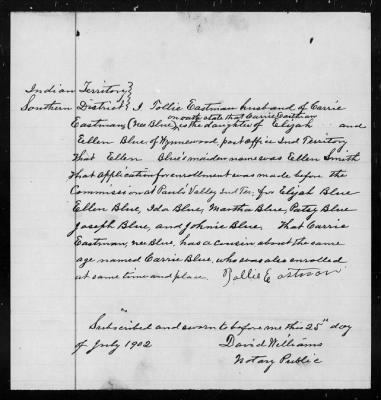 Indian Territory}
Southern District} I Tollie Eastman husband of Carrie
on oath state that Carrie Eastman
Eastman, (nee Blue), is the daughter of Elijah and
Ellen Blue of Wynnewood, post office Ind Territory
That Ellen Blue's maiden name was Ellen Smith
that application for enrollment was made before the
Commission at Paul's Valley Ind Ter, for Elijah Blue
Ellen Blue, Ida Blue, Martha Blue, Patsy Blue
Joseph Blue, and Johnie Blue. That Carrie
Eastman, nee Blue, has a cousin about the same
age named Carrie Blue, who was also enrolled
at same time and place. Tollie Eastman
Subscribed and sworn to before me this 25" day
of July 1902 David Williams
Notary Public